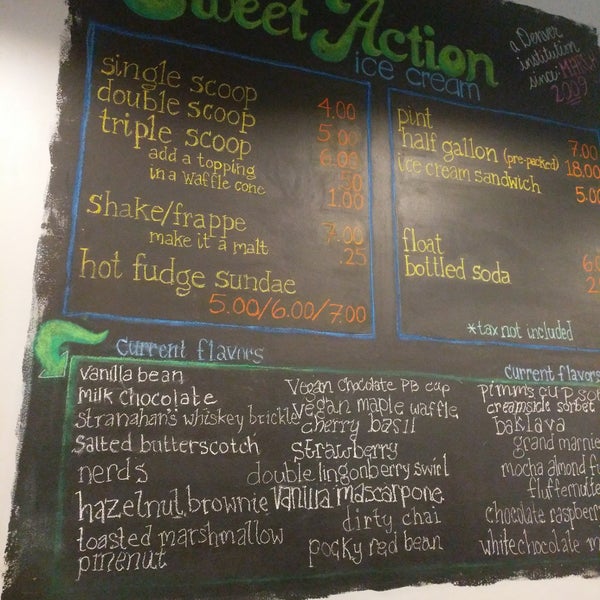 Sweet Action
ice cream
a Denver
institution
since MARCH
2009
single scoop 4.00
double scoop 5.00
triple scoop 6.00
add a topping .50
in a waffle cone 1.00
shake/frappe 7.00
make it a malt .25
hot fudge sundae
5.00/6.00/7.00
pint 7.00
half gallon (pre-packed) 18.00
ice cream sandwich 5.00
float
bottled soda
*tax not included
current flavors
vanilla bean
milk chocolate
stranahan's whiskey brickle
salted butterscotch
nerds
hazelnut brownie
toasted marshmallow
pinenut
vegan chocolate PB cup
vegan maple waffle
cherry basil
strawberry
double lingonberry swirl
vanilla mascarpone
dirty chai
pocky red bean
current flavors
pimm's cup
creamsicle sorbet
baklava
grand
mocha almond
chocolate
white chocolate